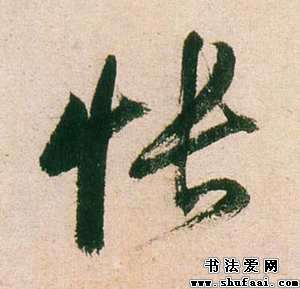 怅
书法爱网
www.shufaai.com